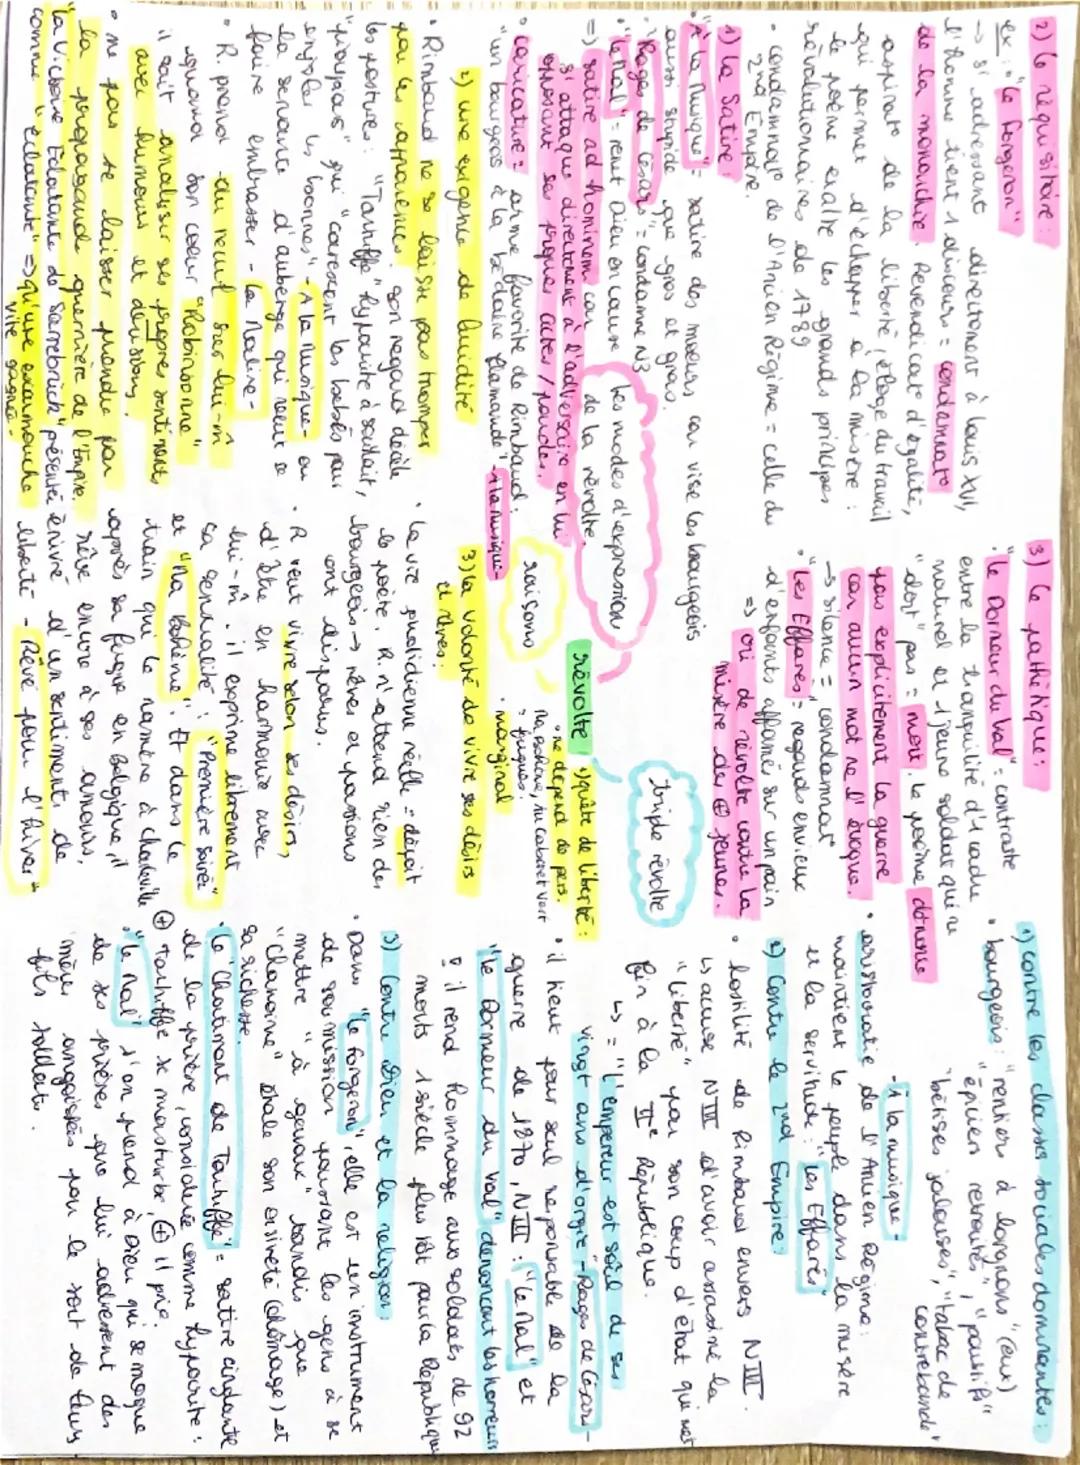 1) contre les classes sociales dominantes :
• bourgeois : "rentiers à lorgnons" (eux)
"épiciers retraités", "poussifs"
"bêtises jalouses", "tabac de contrebande"
- À la musique -
• aristocratie de l'Ancien Régime :
maintient le peuple dans la misère
et la servitude : "Les Effarés"
2) Contre le 2nd Empire :
• hostilité de Rimbaud envers N III.
↳ accuse N III d'avoir assassiné la
"liberté" par son coup d'état qui met
fin à la IIe République.
↳ = "L'empereur est soûl de ses
vingt ans d'orgie" - Rages de César -
• il tient pour seul responsable de la
guerre de 1870, N III : "Le Mal" et
"Le Dormeur du Val" dénoncant les horreurs
• il rend hommage aux soldats de 92
morts 1 siècle plus tôt pour la République
3) Contre Dieu et la religion :
• Dans "Le Forgeron", elle est un instrument
de soumission poussant les gens à se
mettre "à genoux" tandis que
"Chanoine" étale son oisiveté (chômage) et
sa richesse.
• "Le Chatiment de Tartuffe" = satire cinglante
de la prière, considérée comme hypocrite :
⊕ Tartuffe se masturbe, ⊕ il prie.
• "Le Mal" s'en prend à Dieu qui se moque
de ses prières que lui adressent des
mères angoissées par le sort de leurs
fils soldats.
2) Le réquisitoire :
ex : "Le Forgeron"
→ s'adressant directement à Louis XVI,
l'homme tient 1 discours = condamnato
de la monarchie. Revendicato d'égalité,
aspirato de la liberté, éloge du travail
qui permet d'échapper à la misère :
le poème exalte les grands principes
révolutionnaires de 1789
• condamnato de l'Ancien Régime = celle du
2nd Empire.
1) La Satire :
"À la musique" = satire des moeurs car vise les bourgeois
aussi stupide que gros et gras.
"Rages de Césars" = condamne N3
"Le Mal" = remet Dieu en cause
=> satire ad hominem car
s'attaque directement à l'adversaire en lui
opposant ses propres actes / paroles.
• caricature = arme favorite de Rimbaud :
"un bourgeois à la bedaine flamande" - A la musique -
3) Le pathétique :
• "Le Dormeur du Val" = contraste
entre la tranquilité d'1 cadre
naturel et 1 jeune soldat qui ne
"dort" pas = mort. Le poème dénonce
pas explicitement la guerre
car aucun mot ne l'évoque.
→ silence = "condamnat°"
• "Les Effarés" = regards envieux
d'enfants affamés sur un pain
=> cri de révolte contre la
misère des ⊕ jeunes.
les modes d'expression
de la révolte
raisons
révolte
triple révolte
1) quête de liberté :
• ne dépend de pers.
Ma Bohème, Au Cabaret Vert
= fugues.
• marginal
2) une exigence de lucidité
• Rimbaud ne se laisse pas tromper
par les apparences. Son regard décèle
les postures : "Tartuffe" hypocrite à souhait,
"pioupious" qui "caressent les bébés pour
enjoler les bonnes" - A la musique - ou
la servante d'auberge qui veut se
faire embrasser - La Maline -
• R. prend du recul sur lui-m̂
quand son cœur "Robinsonne"
il sait analyser ses propres sentiments
avec humour et dérision.
• ne pas se laisser prendre par
la propagande guerrière de l'Empire
"La Victoire Eclatante de Sarrebrück" présentée
comme "éclatante" => qu'une escarmouche
vite gagnée.
3) La volonté de vivre ses désirs
et rêves :
• La vie quotidienne réelle = déçoit
le poète. R. n'attend rien des
bourgeois → rêves et passions
ont disparus.
• R veut vivre selon ses désirs,
d'être en harmonie avec
lui-m̂. il exprime librement
sa sensualité : "Première soirée"
et "Ma Bohème". Et dans le
train qui le ramène à Charleville
après sa fugue en Belgique, il
rêve encore à ses amours,
énivré d'un sentiment de
liberté - Rêvé pour l'hiver -